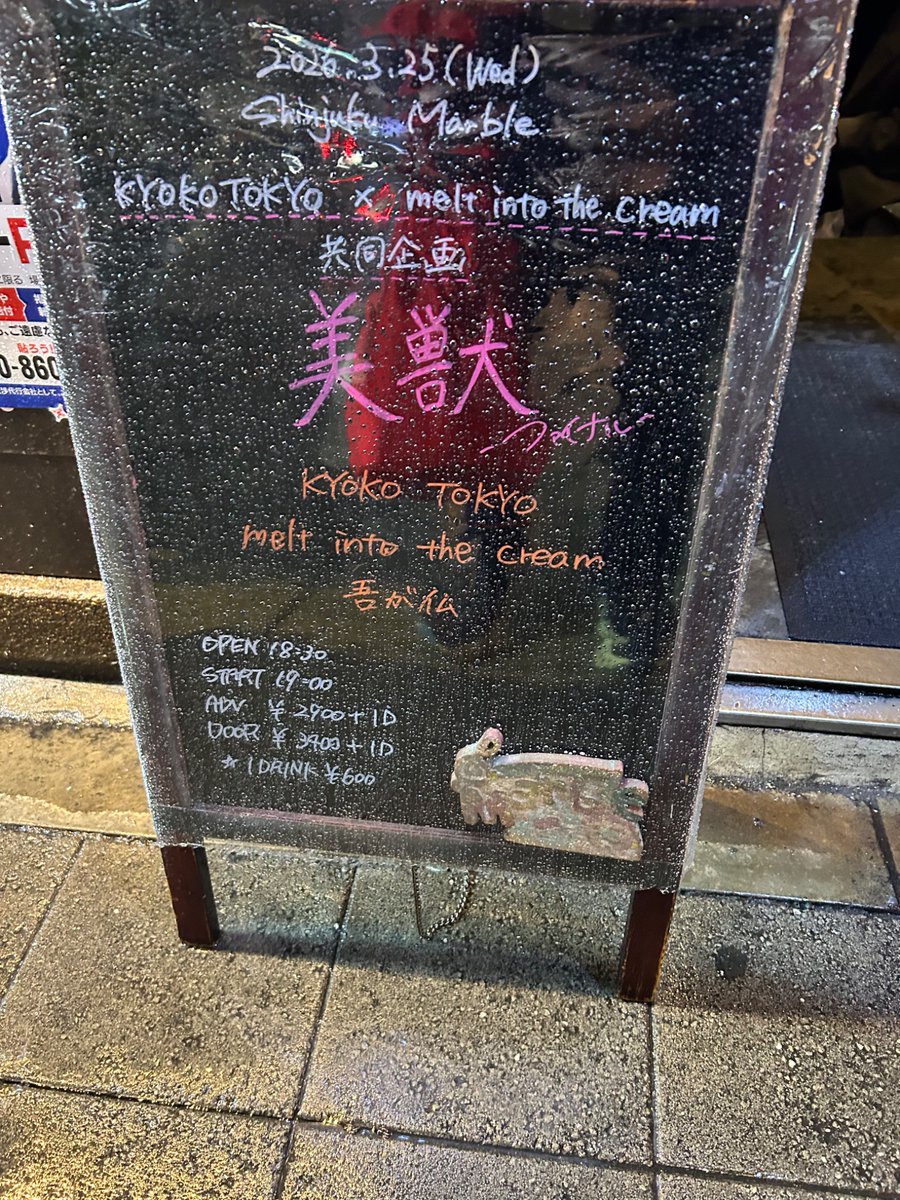 2026.3.25(Wed)
Shinjuku Marble
KYOKO TOKYO × melt into the cream
共同企画
美獣犬
〜ファイナル〜
KYOKO TOKYO
melt into the cream
吾が仏
OPEN 18:30
START 19:00
ADV ¥2900+1D
DOOR ¥3400+1D
★1DRINK ¥600
に限る
ご遠慮
貼ろう!
0-860